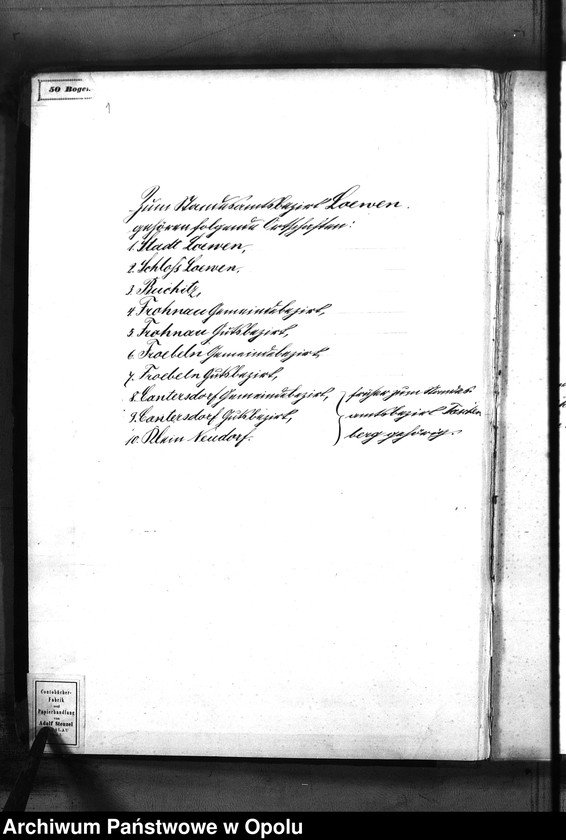 50 Bogen
1
Zum Standesamtsbezirk Loewen.
gehören folgende Ortschaften:
1. Stadt Loewen,
2. Schloß Loewen,
3. Buchitz,
4. Frohnau Gemeindebezirk,
5. Frohnau Gutsbezirk,
6. Froebeln Gemeindebezirk
7. Froebeln Gutsbezirk,
8. Cantersdorf Gemeindebezirk, früher zum Standes
9. Cantersdorf Gutsbezirk, amtsbezirk
10. Klein Neudorf. berg gehörig.
Contobücher-
Fabrik
und
Papierhandlung
von
Adolf Stenzel
Archiwum Państwowe w Opolu